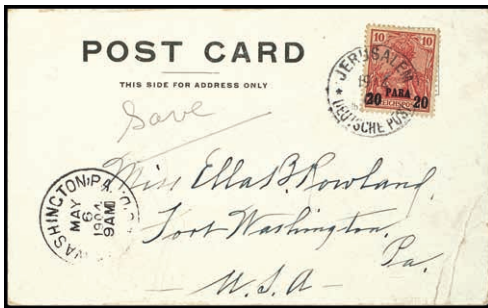 POST CARD
THIS SIDE FOR ADDRESS ONLY
10 10
JERUSALEM
PARA
20 20
DEUTSCHE POST
Save
Miss Ella B. Rowland,
Fort Washington,
Pa.
U.S.A-
WASHINGTON, PA.
MAY
6
1904
9AM